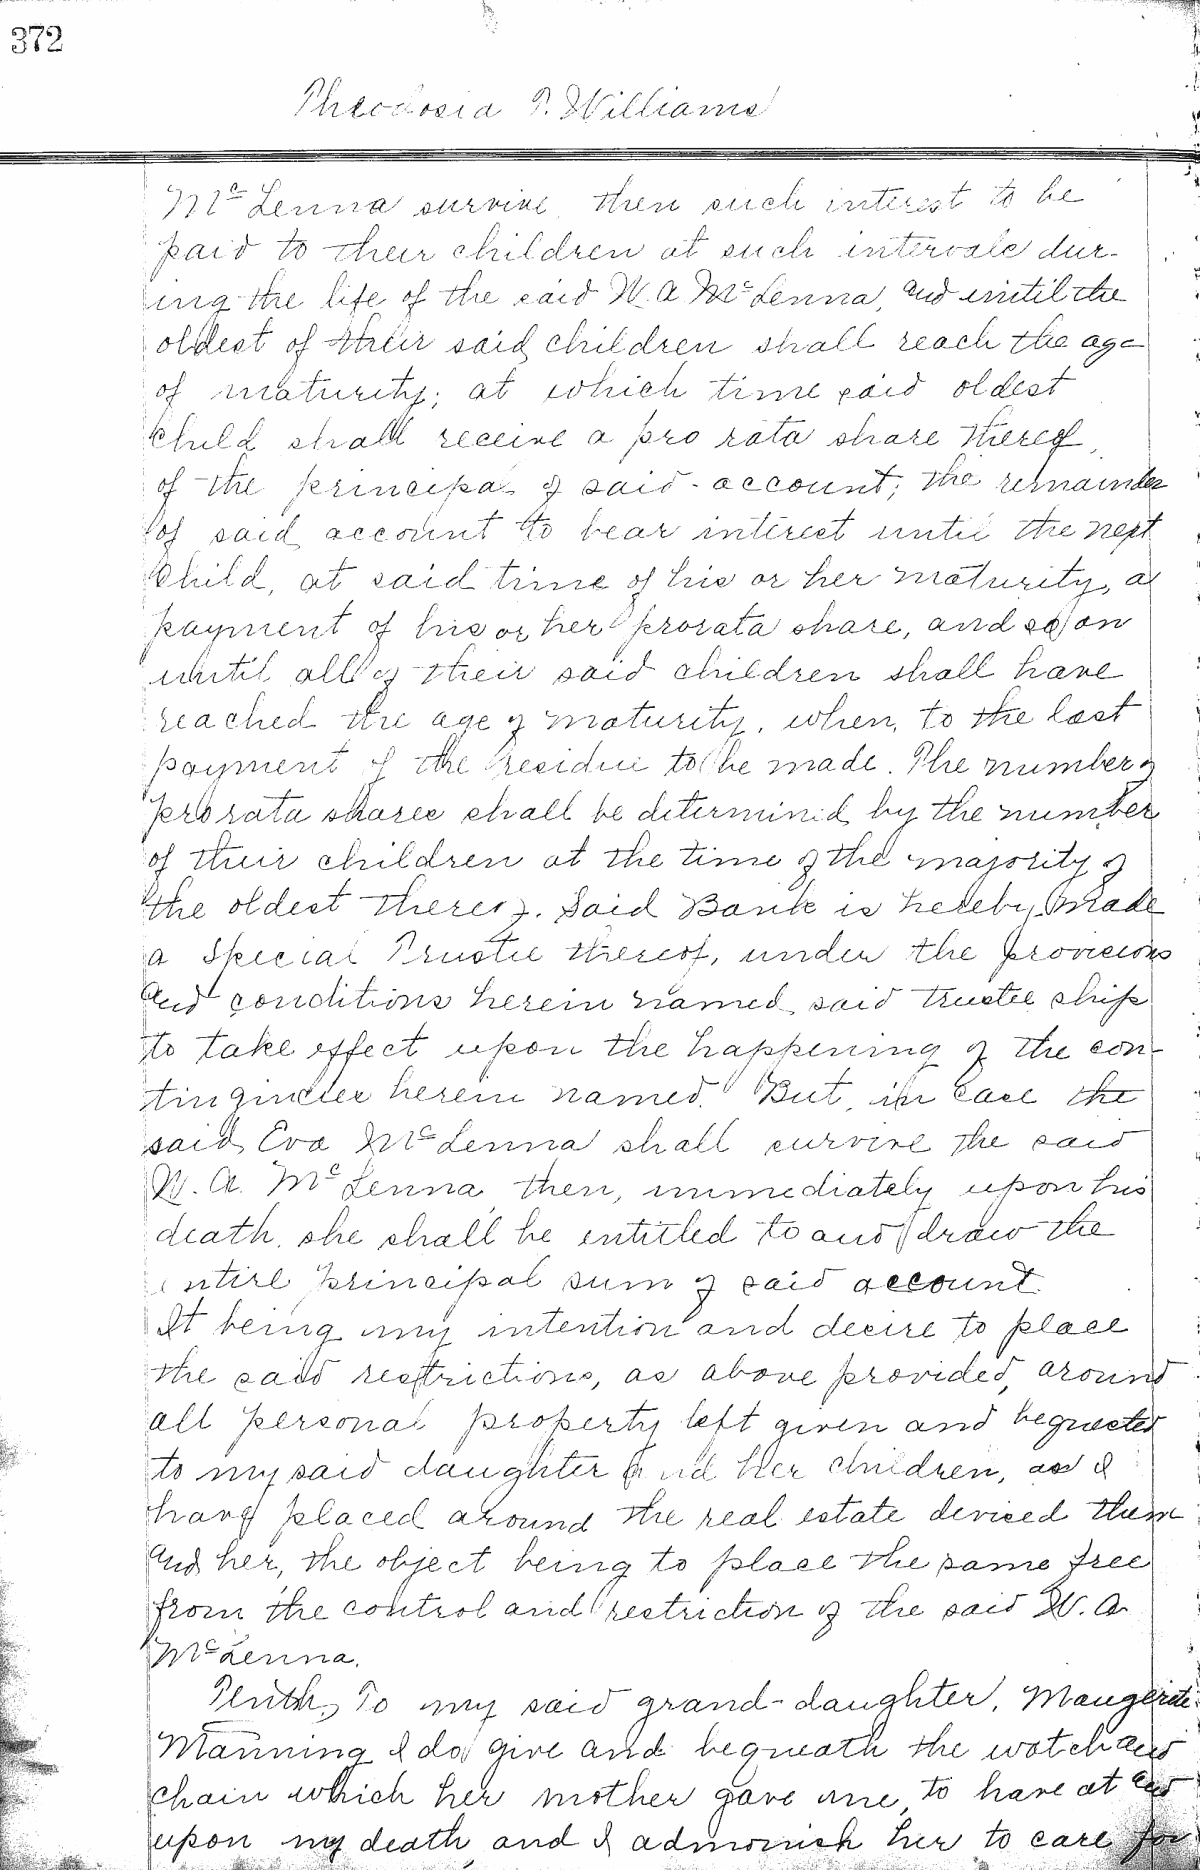 372
Theodosia P. Williams
Mc Lenna survive then such interest to be
paid to their children at such intervals dur-
ing the life of the said W. A McLenna, and until the
oldest of their said children shall reach the age
of maturity; at which time said oldest
child shall receive a pro rata share thereof,
of the principal of said account; the remainder
of said account to bear interest until the next
child, at said time of his or her maturity, a
payment of his or her prorata share, and so on
until all of their said children shall have
reached the age of maturity, when, to the last
payment of the residue to be made. The number of
prorata shares shall be determined by the number
of their children at the time of the majority of
the oldest thereof. Said Bank is hereby made
a Special Trustee thereof, under the provisions
and conditions herein named said trustee ship
to take effect upon the happening of the con-
tingincies herein named. But, in case the
said Eva McLenna shall survive the said
W. A. McLenna, then, immediately upon his
death, she shall be entitled to and draw the
entire principal sum of said account.
It being my intention and desire to place
the said restrictions, as above provided, around
all personal property left given and bequeated
to my said daughter and her children, as I
have placed around the real estate devised them
and her, the object being to place the same free
from the control and restriction of the said W. A.
McLenna.
Tenth, To my said grand-daughter, Maugerite
Manning I do give and bequeath the watch and
chain which her mother gave me, to have at and
upon my death, and I admonish her to care for